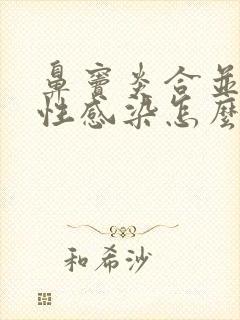 鼻竇炎合並
性感染怎麼
和希沙